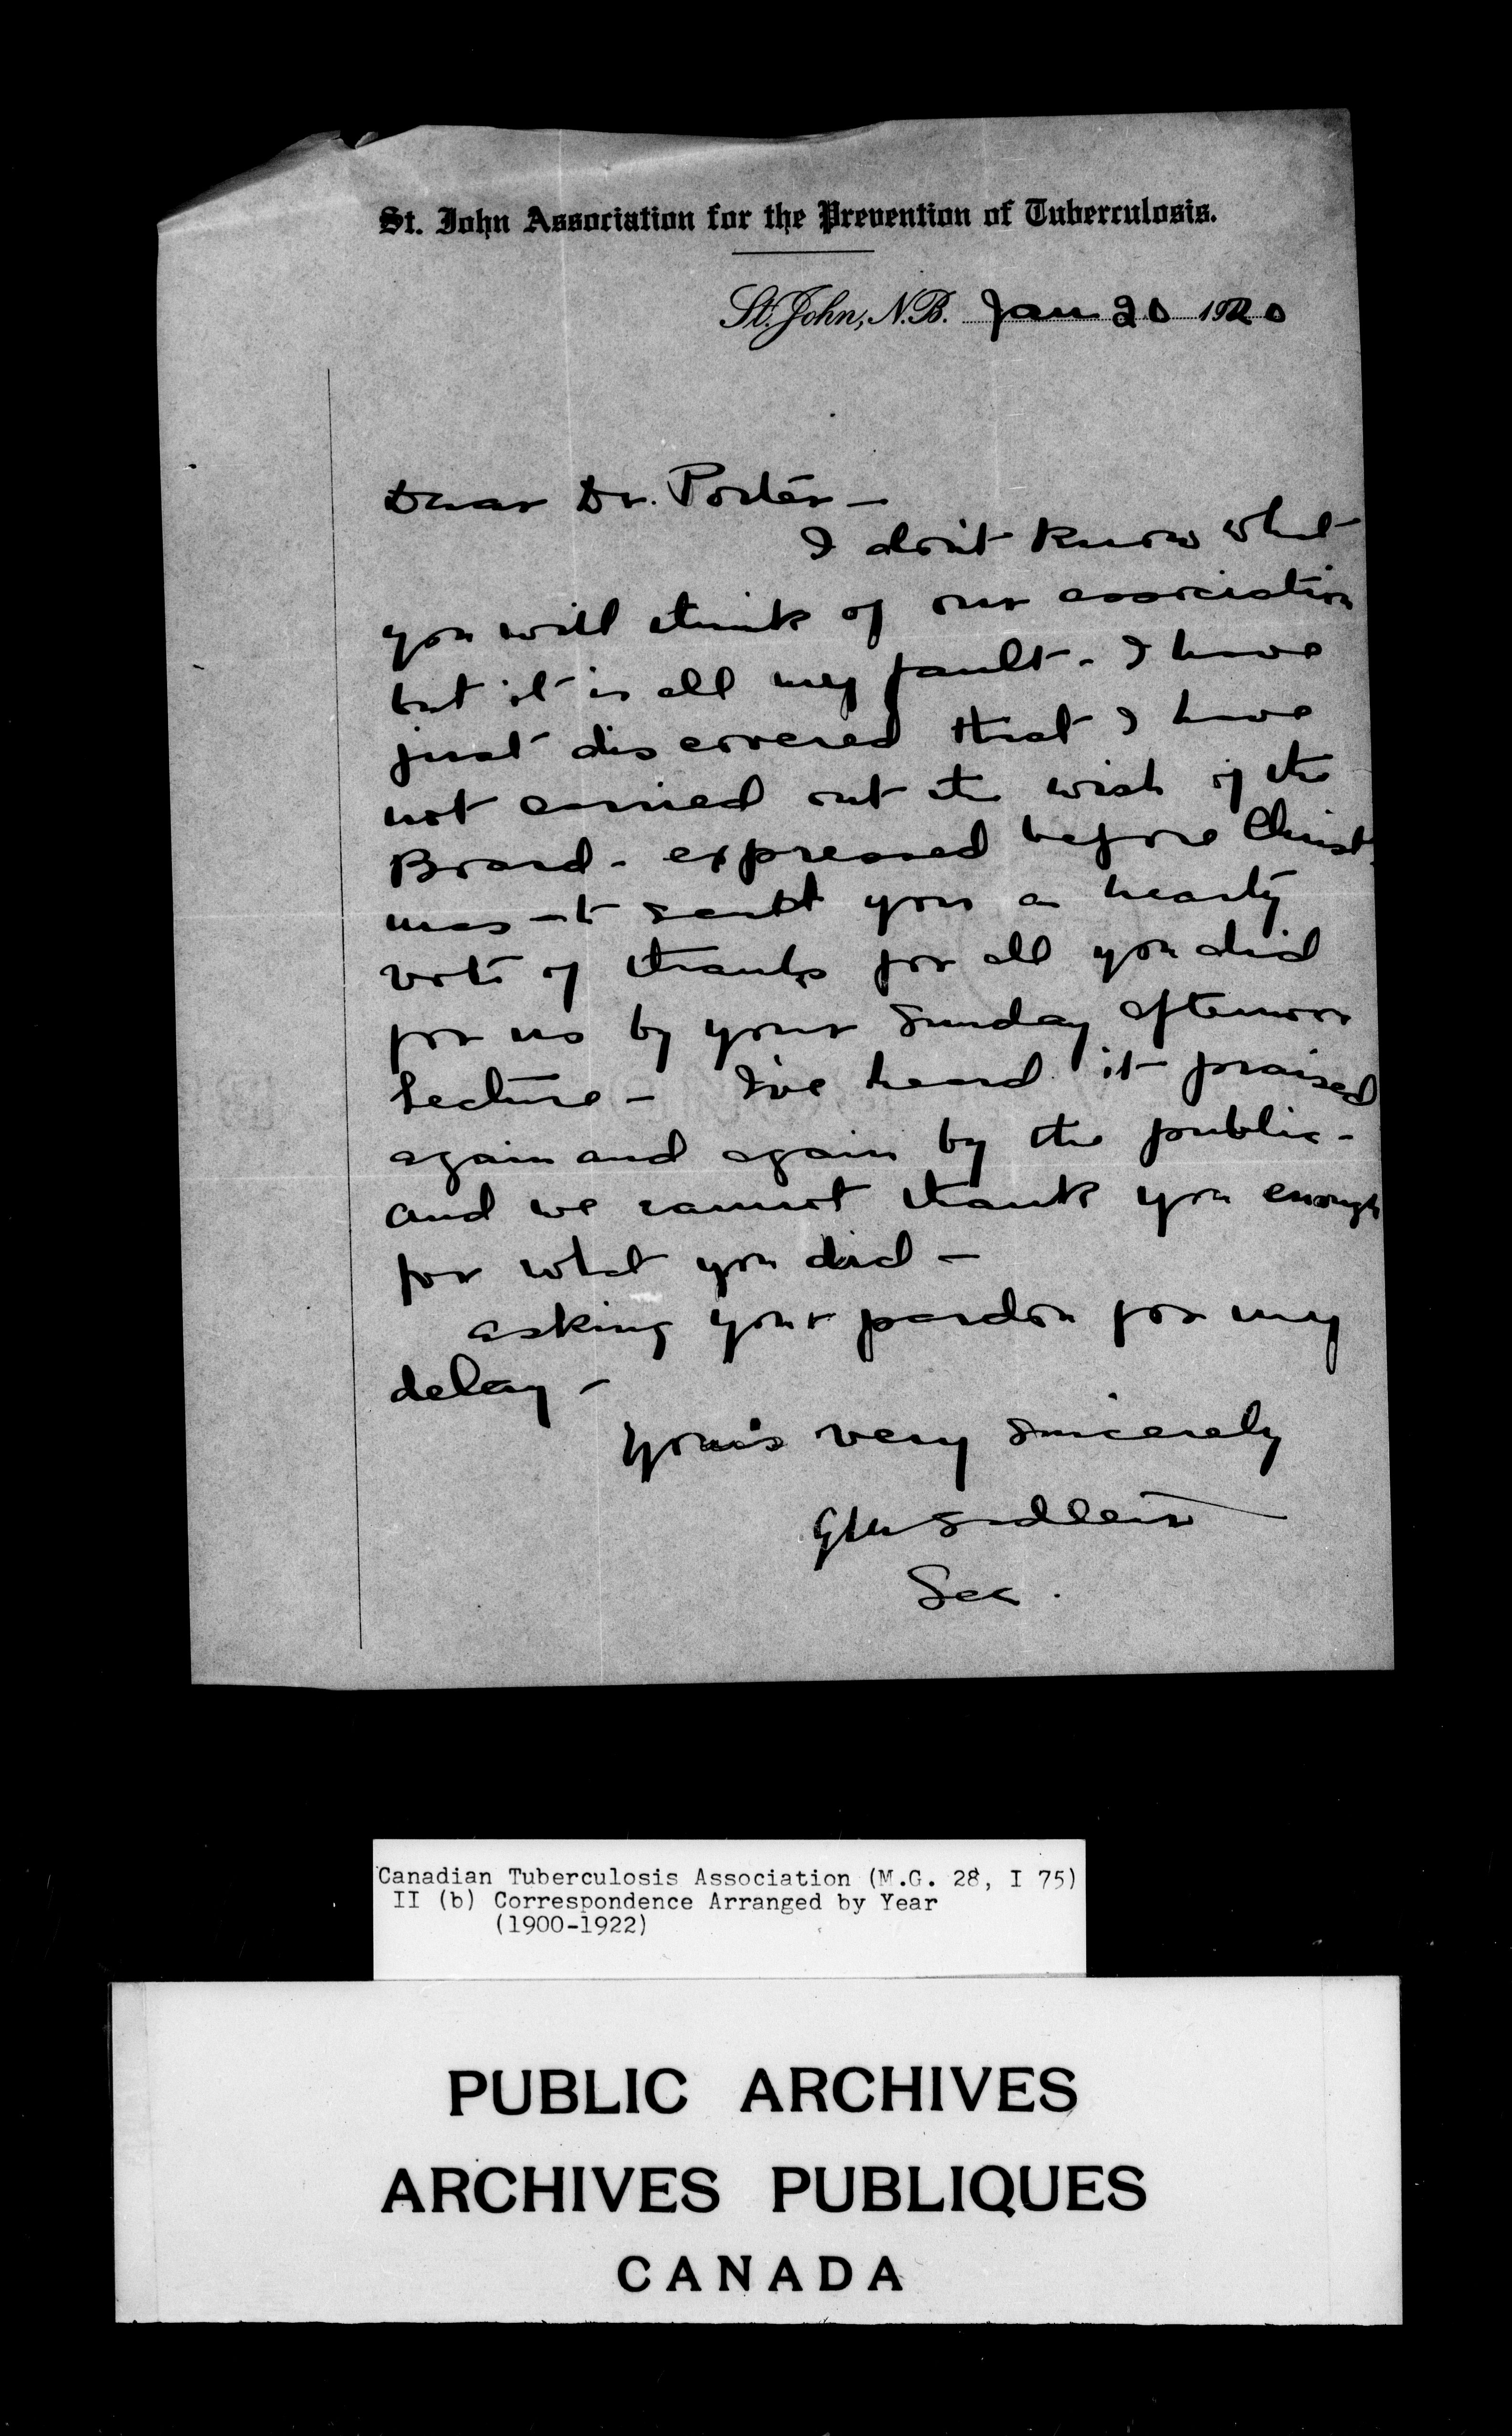 St. John Association for the Prevention of Tuberculosis.
St. John, N.B. Jan 20 1920
Dear Dr. Porter –
I don't know what
you will think of our association
but it is all my fault – I have
just discovered that I have
not carried out the wish of the
Board – expressed before Christ-
mas – to send you a hearty
vote of thanks for all you did
for us by your Sunday afternoon
lecture – I've heard it praised
again and again by the public –
and we cannot thank you enough
for what you did –
asking your pardon for my
delay –
Yours very sincerely
Sec.
Canadian Tuberculosis Association (M.G. 28, I 75)
II (b) Correspondence Arranged by Year
(1900-1922)
PUBLIC ARCHIVES
ARCHIVES PUBLIQUES
CANADA